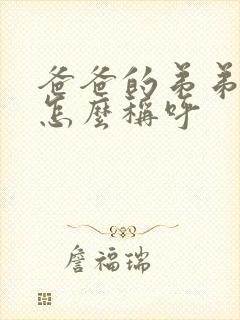 爸爸的弟弟
怎麼稱呼
詹福瑞